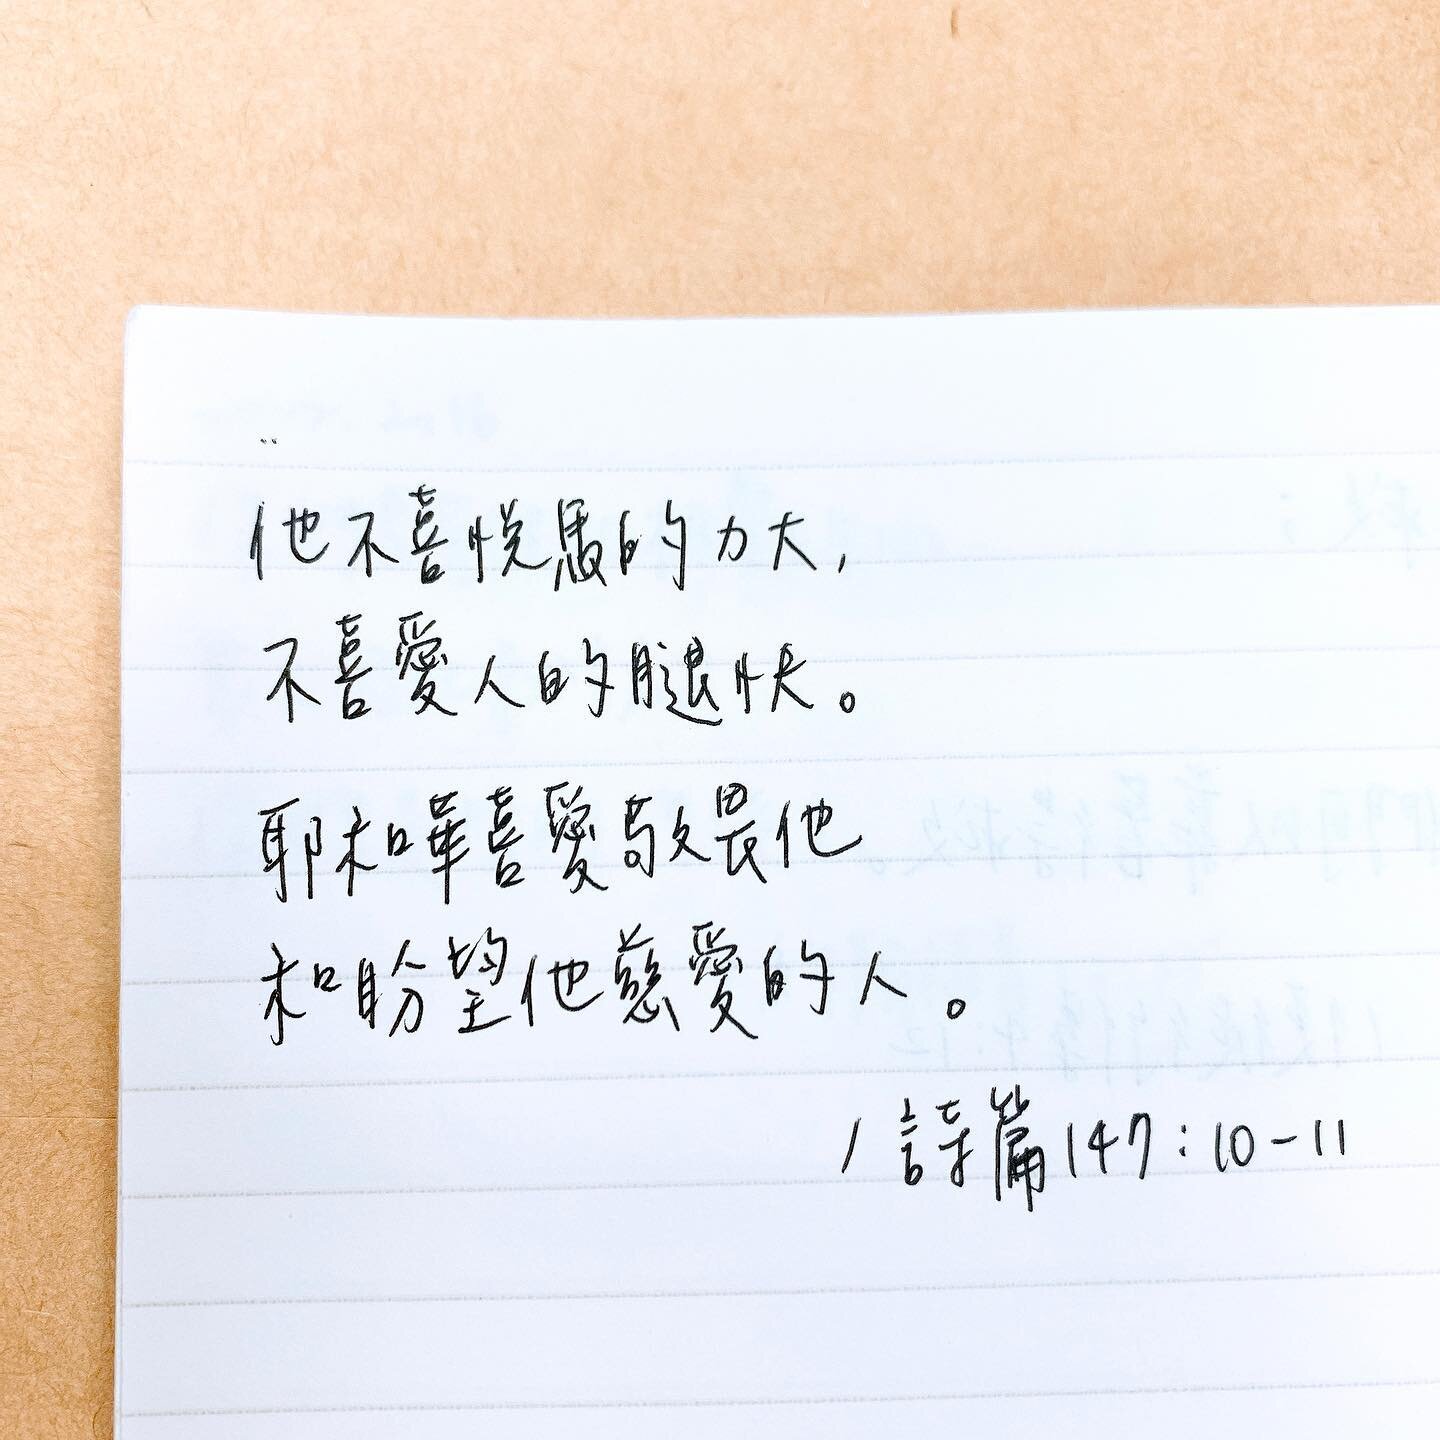 他不喜悅馬的力大,
不喜愛人的腿快。
耶和華喜愛敬畏他
和盼望他慈愛的人。
/ 詩篇147:10-11